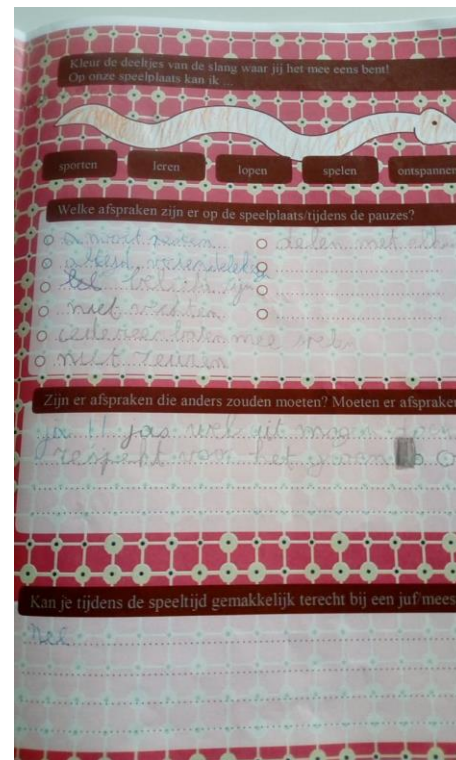 Kleur de deeltjes van de slang waar jij het mee eens bent!
Op onze speelplaats kan ik ...
sporten leren lopen spelen ontspannen
Welke afspraken zijn er op de speelplaats/tijdens de pauzes?
nooit pesten
delen met
altijd
beleefd zijn
niet vechten
iedereen laten mee spelen
niet zeuren
Zijn er afspraken die anders zouden moeten? Moeten er afspraken
ja jas wel uit mogen
respekt voor het
Kan je tijdens de speeltijd gemakkelijk terecht bij een juf/mees
nee